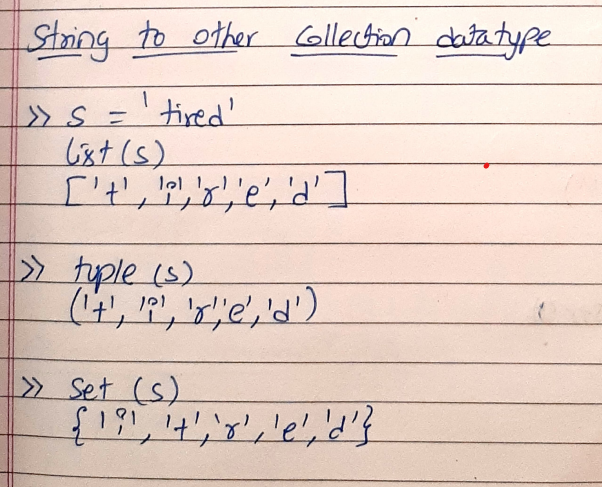 String to other Collection datatype
>> s = 'tired'
list(s)
['t', 'i', 'r', 'e', 'd']
>> tuple (s)
('t', 'i', 'r', 'e', 'd')
>> Set (s)
{'i', 't', 'r', 'e', 'd'}